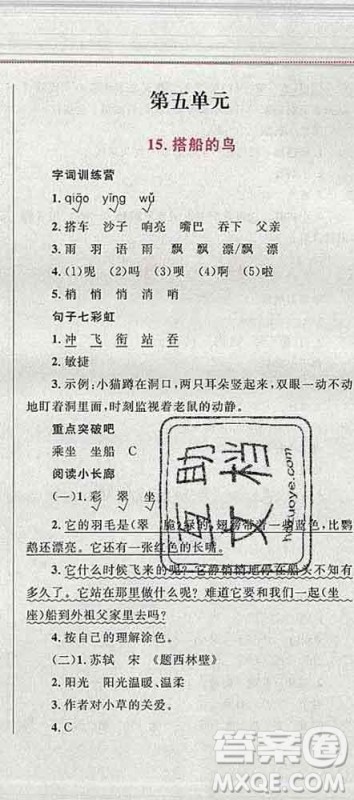 第五单元
15.搭船的鸟
字词训练营
1. qiāo yīng wǔ
2. 搭车 沙子 响亮 嘴巴 吞下 父亲
3. 雨 羽 语 雨 飘 飘 漂/飘 漂
4. (1)呢 (2)吗 (3)呗 (4)呀 (5)啦
5. 梢 悄 悄 消 浪 狼
句子七彩虹
1. 冲 飞 衔 站 吞
2. 敏捷
3. 示例:小猫蹲在洞口,两只耳朵竖起来,双眼一动不动
地盯着洞里面,时刻监视着老鼠的动静。
重点突破吧
乘坐 坐船 C
阅读小长廊
(一)1. 彩 翠 坐
2. 它的羽毛是(翠 脆)绿的,翅膀带着一些蓝色,比鹦
鹉还漂亮。它还有一张红色的长嘴。
3. 它什么时候飞来的呢?它静悄悄地停在船头不知有
多久了。它站在那里做什么呢?难道它要和我们一起(坐
座)船到外祖父家里去吗?
4. 按自己的理解涂色。
(二)1. 苏轼 宋 《题西林壁》
2. 阳光 阳光温暖、温柔
3. 作者对小草的关爱。
4. C
互助文档
huzhuoye.com
答案圈
MXQE.COM